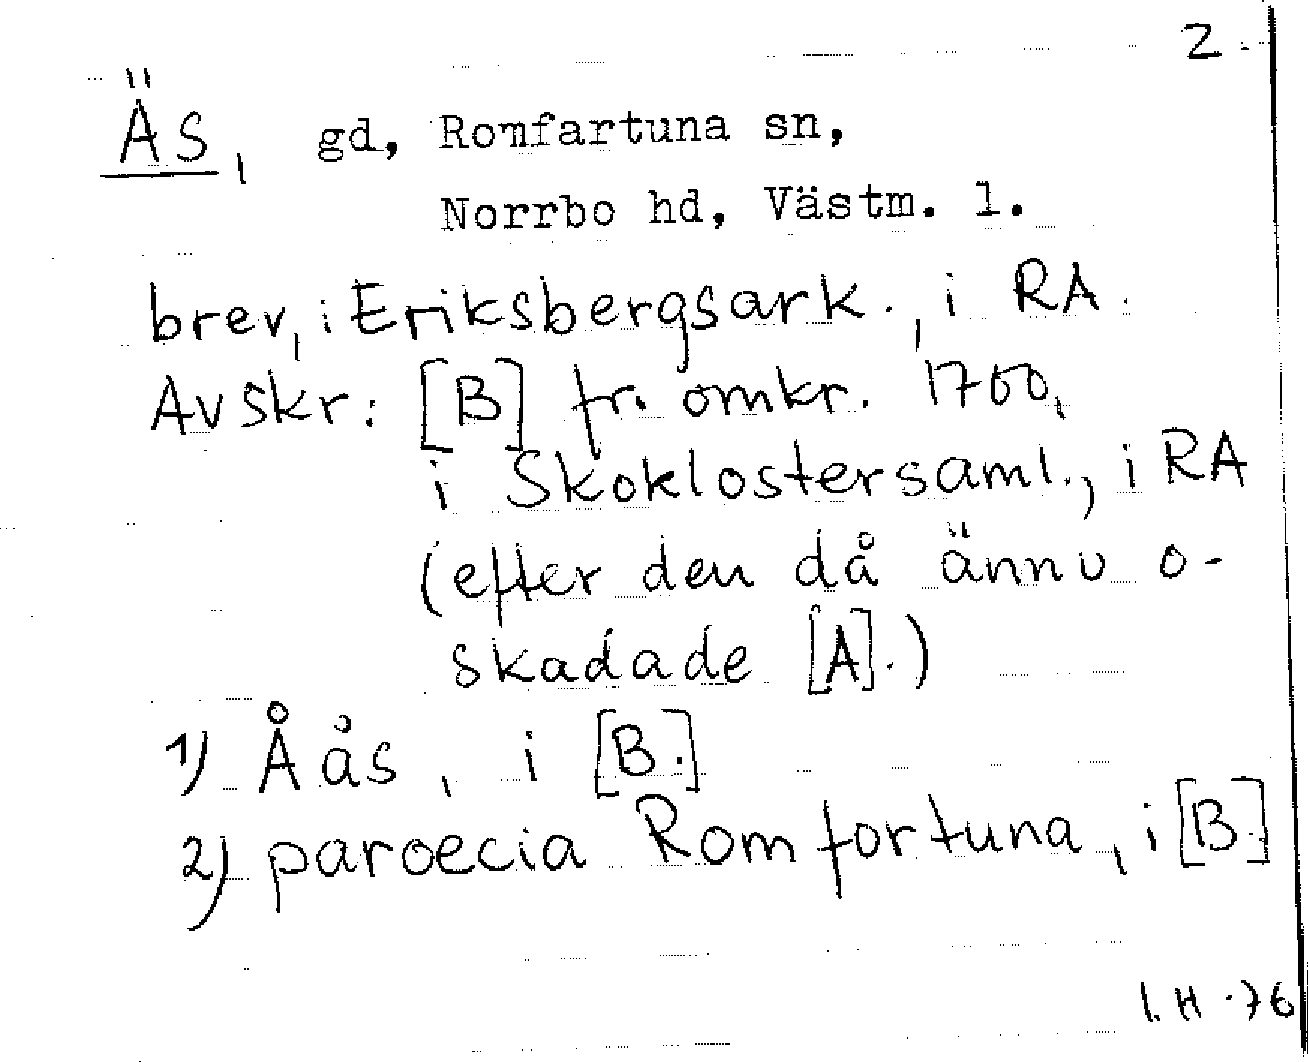 2.
Äs, gd, Romfartuna sn,
Norrbo hd, Västm. l.
brev, i Eriksbergsark., i RA.
Avskr: [B] fr. omkr. 1700,
i Skoklostersaml., i RA
(efter den då ännu o-
skadade [A].)
1) Åås, i [B.]
2) paroecia Romfortuna, i [B.]
I. H. 76